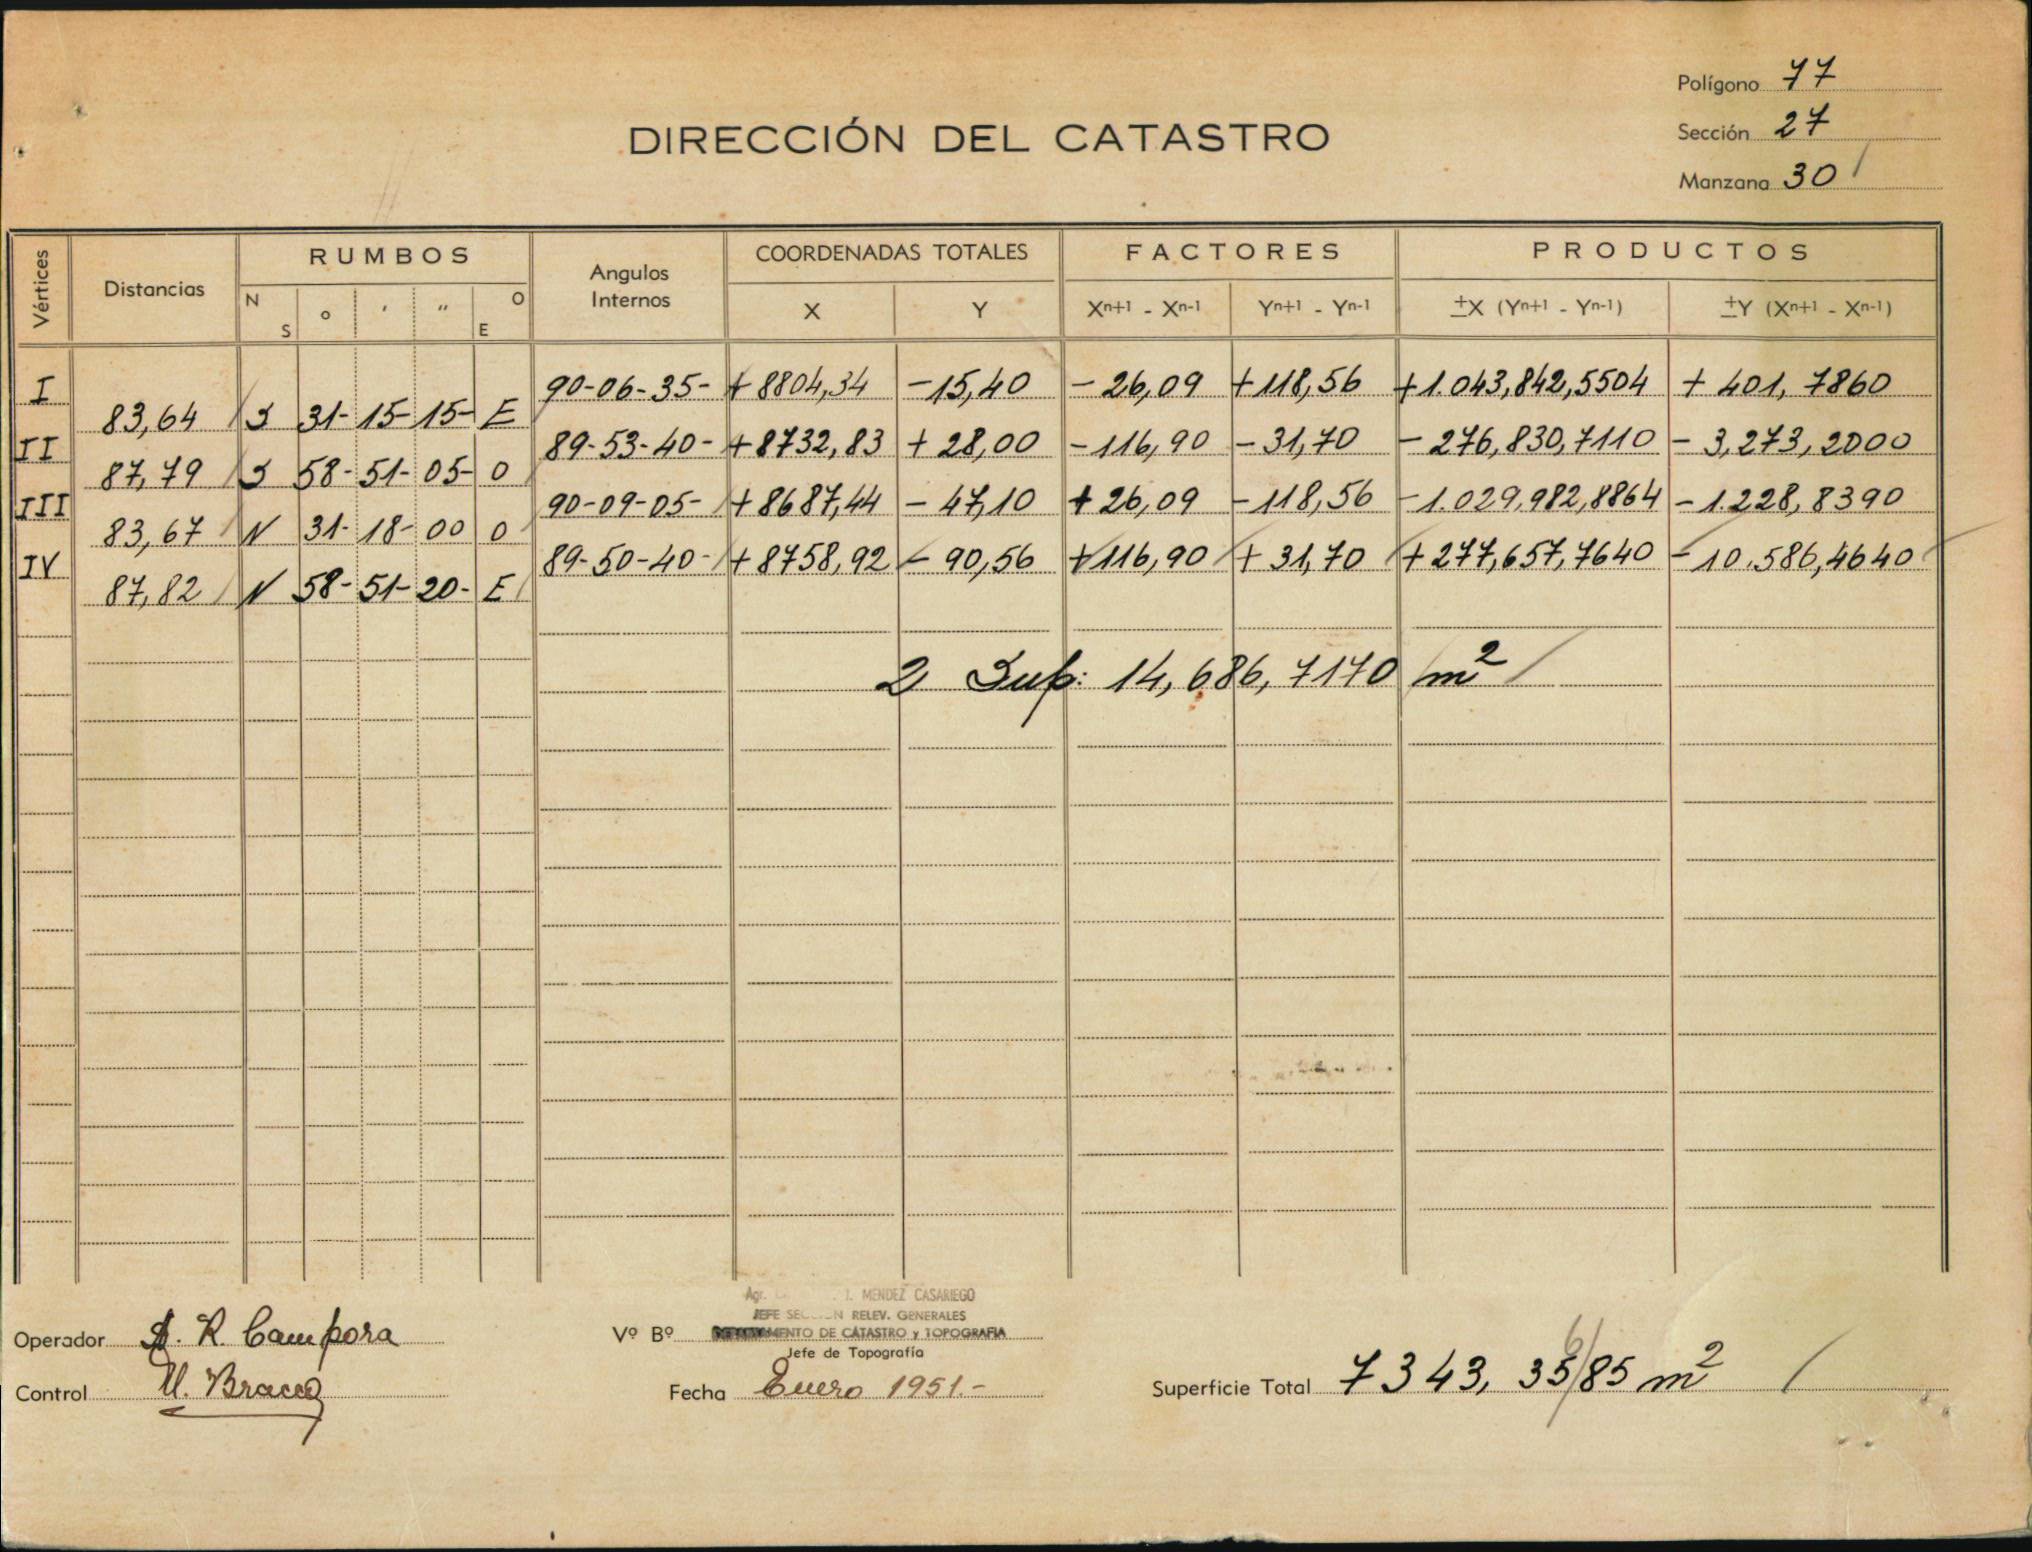 Polígono 77
DIRECCIÓN DEL CATASTRO
Sección 27
Manzana 30
Vértices Distancias RUMBOS Angulos Internos COORDENADAS TOTALES FACTORES PRODUCTOS
N S ° ' " O E X Y Xn+1 - Xn-1 Yn+1 - Yn-1 ±X (Yn+1 - Yn-1) ±Y (Xn+1 - Xn-1)
I 90-06-35- +8804,34 -15,40 -26,09 +118,56 +1.043,842,5504 + 401,7860
83,64 S 31-15-15- E
II 89-53-40- +8732,83 +28,00 -116,90 -31,70 -276,830,7110 -3,273,2000
87,79 S 58-51-05- O
III 90-09-05- +8687,44 -47,10 +26,09 -118,56 -1.029,982,8864 -1.228,8390
83,67 N 31-18-00 O
IV 89-50-40- +8758,92 -90,56 +116,90 +31,70 +277,657,7640 -10.586,4640
87,82 N 58-51-20- E
2 Sup: 14,686,7170 m²
MENDEZ CASARIEGO
JEFE RELEV. GENERALES
Operador A. R. Campora Vº Bº DEPARTAMENTO DE CATASTRO y TOPOGRAFIA
Jefe de Topografía
Control U. Bracco Fecha Enero 1951.- Superficie Total 7343,3585 m²
6